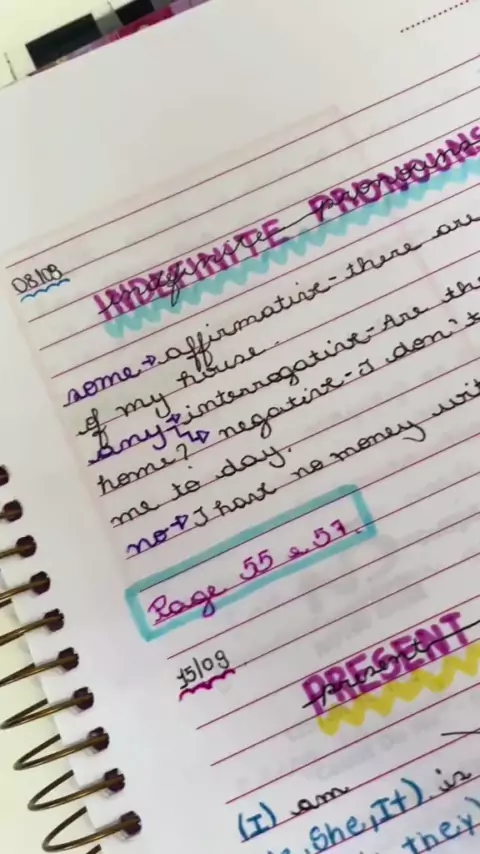 08/09
INDEFINITE PRONOUNS
indefinite pronouns
some → affirmative - there are
of my house.
any → interrogative - Are the
home? ↳ negative - I don't
me to day.
no → I have no money wit
Page 55 e 57.
15/09
PRESENT
present
(I) am
, She, It) is
they)